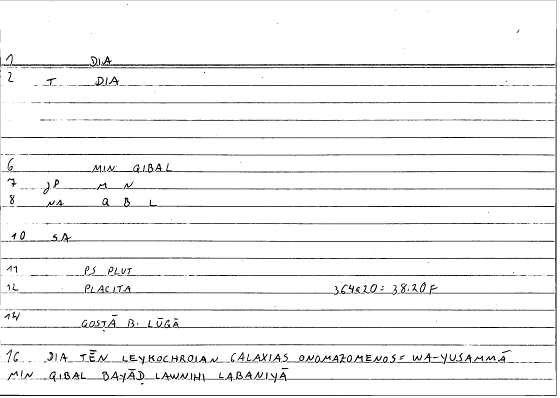 1 DIA
2 T DIA
6 MIN QIBAL
7 JP M N
8 NA Q B L
10 SA
11 PS PLUT
12 PLACITA 364A20 = 38.20F
14 QOSṬĀ B. LŪQĀ
16 DIA TĒN LEYKOCHROIAN GALAXIAS ONOMAZOMENOS = WA-YUSAMMĀ
MIN QIBAL BAYĀḌ LAWNIHI LABANIYĀ